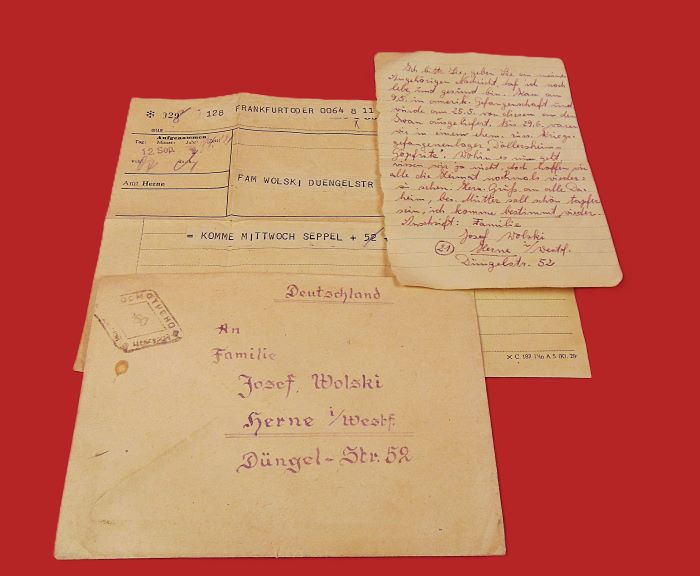 * 029 128 FRANKFURTODER 0064 8 11
aus
Aufgenommen
Tag: Monat: Jahr:
12. Sep.
von
Amt Herne
FAM WOLSKI DUENGELSTR
= KOMME MITTWOCH SEPPEL + 52
× C 187 A 5 (Kl. 29
Ich bitte Sie, geben Sie an meine
Angehörigen Nachricht, daß ich noch
lebe und gesund bin. Kam am
9.5. in amerik. Gefangenschaft und
wurde am 25.5. von diesen an den
Iwan ausgeliefert. Bis 29.6. waren
wir in einem ehem. russ. Kriegs-
gefangenenlager, Döllersheim-
Göpfritz. Wohin es nun geht,
wissen wir ja nicht, doch hoffen wir
alle die Heimat nochmals wieder-
zu sehen. Herz. Gruß an alle Da-
heim, bes. Mutter soll schön tapfer
sein, ich komme bestimmt wieder
Anschrift: Familie
Josef Wolski
(21) Herne i/Westf.
Düngelstr. 52
Deutschland
An
Familie
Josef Wolski
Herne i/Westf.
Düngel-Str. 52